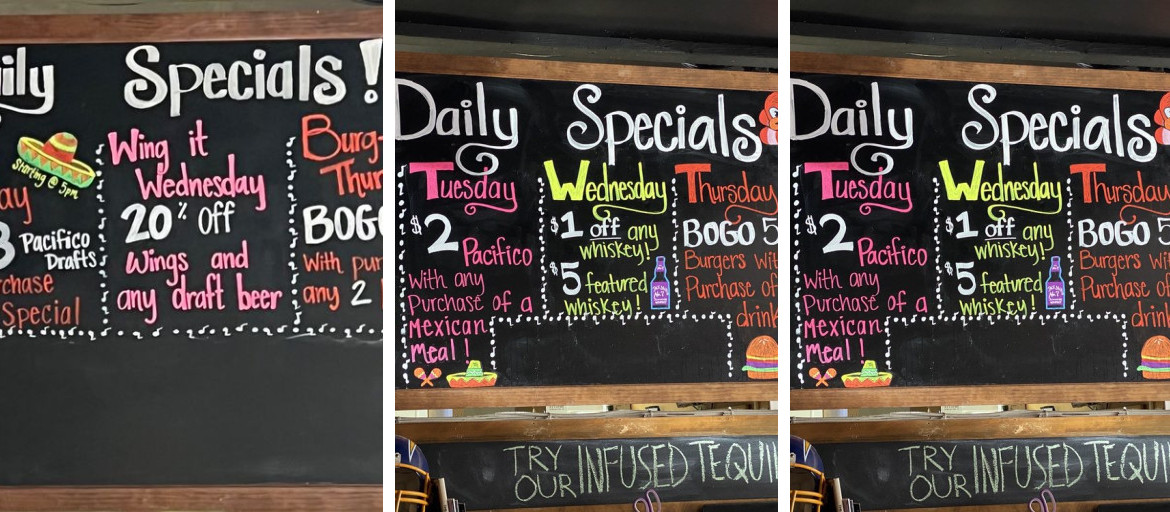 ily Specials!
Starting @ 5pm
ay
3 Pacifico
Drafts
chase
Special
Wing it
Wednesday
20% Off
Wings and
any draft beer
Burg-
Thur
BOGO
With pur
any 2
Daily Specials
Tuesday
$2 Pacifico
With any
Purchase of a
Mexican
Meal!
Wednesday
$1 off any
whiskey!
$5 featured
whiskey!
Thursday
BOGO 5
Burgers wit
Purchase of
drink
TRY
OUR INFUSED TEQUI
Daily Specials
Tuesday
$2 Pacifico
With any
Purchase of a
Mexican
Meal!
Wednesday
$1 off any
whiskey!
$5 featured
whiskey!
Thursday
BOGO 5
Burgers wit
Purchase of
drink
TRY
OUR INFUSED TEQUI